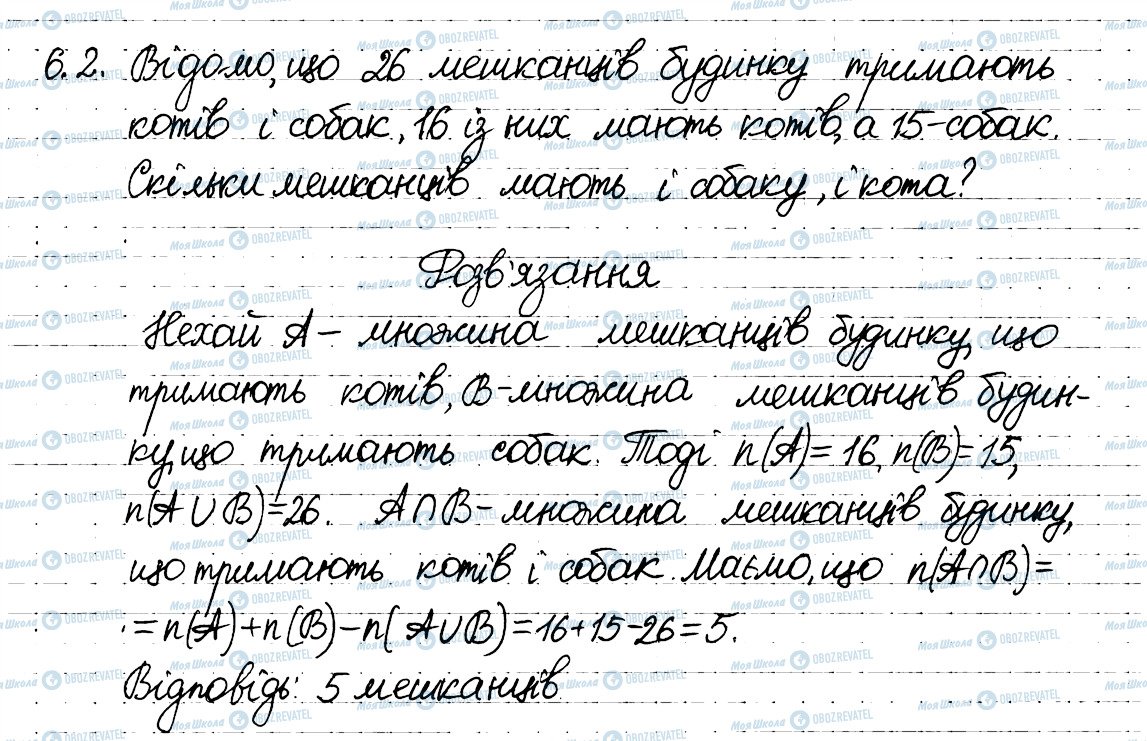 6.2. Відомо, що 26 мешканців будинку тримають
котів і собак, 16 із них мають котів, а 15-собак.
Скільки мешканців мають і собаку, і кота?
Розв'язання
Нехай A – множина мешканців будинку, що
тримають котів, B-множина мешканців будин-
ку, що тримають собак. Тоді n(A)=16, n(B)=15,
n(A∪B)=26. A∩B-множина мешканців будинку,
що тримають котів і собак. Маємо, що n(A∩B)=
=n(A)+n(B)-n(A∪B)=16+15-26=5.
Відповідь: 5 мешканців.
Моя Школа OBOZREVATEL